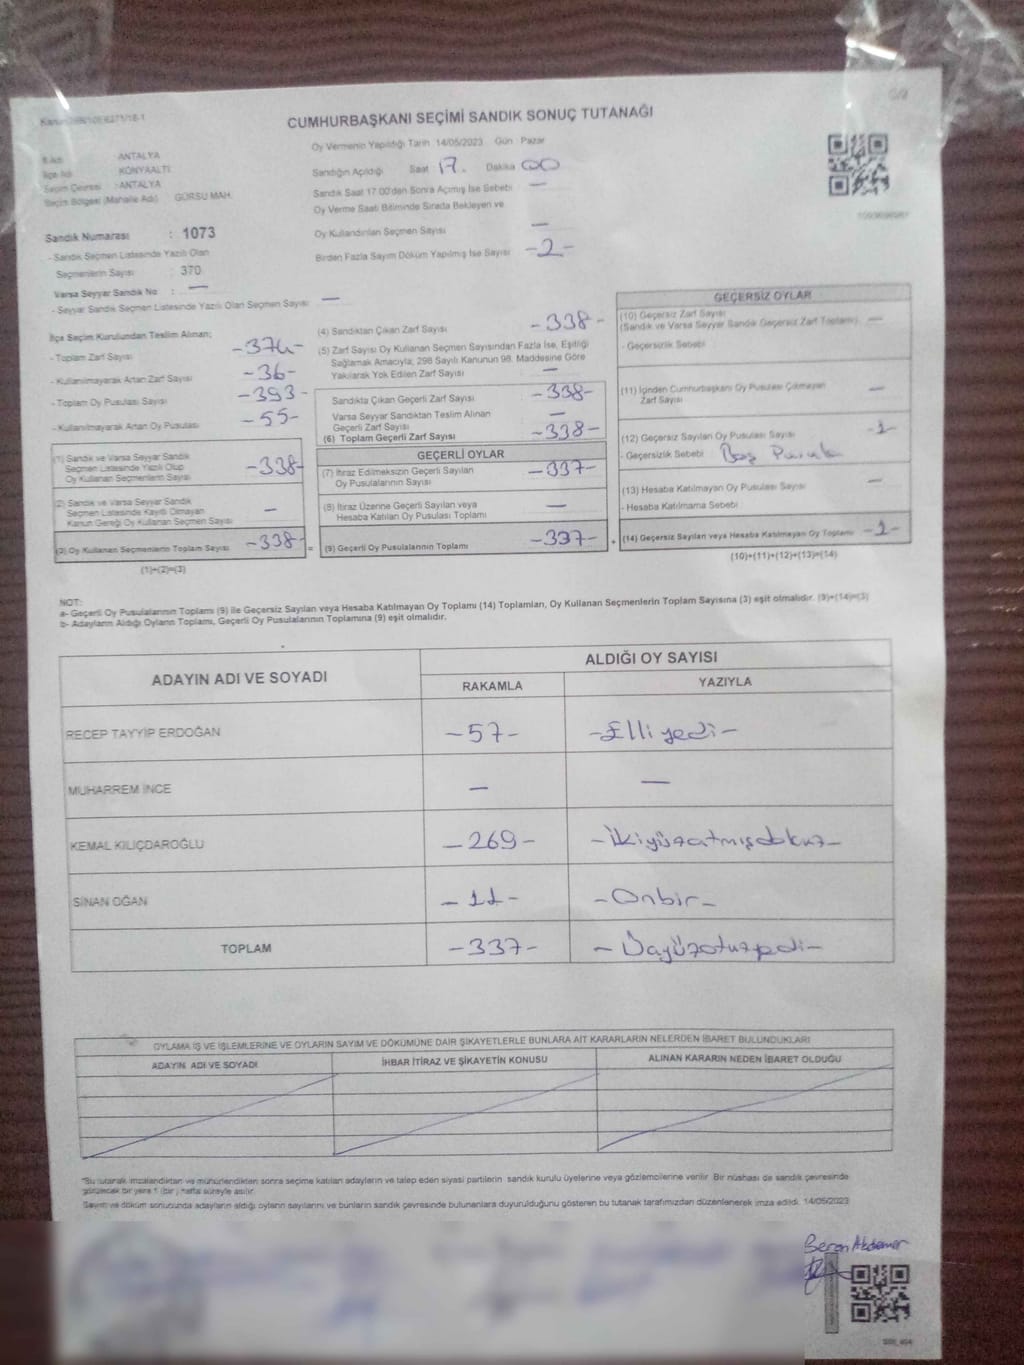 CUMHURBAŞKANI SEÇİMİ SANDIK SONUÇ TUTANAĞI
Oy Vermenin Yapıldığı Tarih 14/05/2023 Gün : Pazar
İl Adı : ANTALYA
İlçe Adı : KONYAALTI
Seçim Çevresi : ANTALYA
Seçim Bölgesi (Mahalle Adı) GÜRSU MAH.
Sandığın Açıldığı Saat 17. Dakika 00
Sandık Saat 17.00'den Sonra Açılmış İse Sebebi —
Oy Verme Saati Bitiminde Sırada Bekleyen ve
Oy Kullandırılan Seçmen Sayısı —
Birden Fazla Sayım Döküm Yapılmış İse Sayısı -2-
Sandık Numarası : 1073
- Sandık Seçmen Listesinde Yazılı Olan
Seçmenlerin Sayısı : 370
Varsa Seyyar Sandık No : —
- Seyyar Sandık Seçmen Listesinde Yazılı Olan Seçmen Sayısı —
İlçe Seçim Kurulundan Teslim Alınan;
- Toplam Zarf Sayısı -374-
- Kullanılmayarak Artan Zarf Sayısı -36-
- Toplam Oy Pusulası Sayısı -393-
- Kullanılmayarak Artan Oy Pusulası -55-
(1) Sandık ve Varsa Seyyar Sandık
Seçmen Listesinde Yazılı Olup
Oy Kullanan Seçmenlerin Sayısı -338-
(2) Sandık ve Varsa Seyyar Sandık
Seçmen Listesinde Kayıtlı Olmayan
Kanun Gereği Oy Kullanan Seçmen Sayısı —
(3) Oy Kullanan Seçmenlerin Toplam Sayısı -338-
(1)+(2)=(3)
(4) Sandıktan Çıkan Zarf Sayısı -338-
(5) Zarf Sayısı Oy Kullanan Seçmen Sayısından Fazla İse, Eşitliği
Sağlamak Amacıyla, 298 Sayılı Kanunun 98. Maddesine Göre
Yakılarak Yok Edilen Zarf Sayısı —
Sandıkta Çıkan Geçerli Zarf Sayısı -338-
Varsa Seyyar Sandıktan Teslim Alınan
Geçerli Zarf Sayısı —
(6) Toplam Geçerli Zarf Sayısı -338-
GEÇERLİ OYLAR
(7) İtiraz Edilmeksizin Geçerli Sayılan
Oy Pusulasının Sayısı -337-
(8) İtiraz Üzerine Geçerli Sayılan veya
Hesaba Katılan Oy Pusulası Toplamı —
= (9) Geçerli Oy Pusulalarının Toplamı -337-
GEÇERSİZ OYLAR
(10) Geçersiz Zarf Sayısı
(Sandık ve Varsa Seyyar Sandık Geçersiz Zarf Toplamı) —
- Geçersizlik Sebebi
(11) İçinden Cumhurbaşkanı Oy Pusulası Çıkmayan
Zarf Sayısı —
(12) Geçersiz Sayılan Oy Pusulası Sayısı -1-
- Geçersizlik Sebebi Boş Pusula
(13) Hesaba Katılmayan Oy Pusulası Sayısı —
- Hesaba Katılmama Sebebi
+ (14) Geçersiz Sayılan veya Hesaba Katılmayan Oy Toplamı -1-
(10)+(11)+(12)+(13)=(14)
NOT:
a- Geçerli Oy Pusulalarının Toplamı (9) ile Geçersiz Sayılan veya Hesaba Katılmayan Oy Toplamı (14) Toplamları, Oy Kullanan Seçmenlerin Toplam Sayısına (3) eşit olmalıdır. (9)+(14)=(3)
b- Adayların Aldığı Oyların Toplamı, Geçerli Oy Pusulalarının Toplamına (9) eşit olmalıdır.
ADAYIN ADI VE SOYADI
ALDIĞI OY SAYISI
RAKAMLA YAZIYLA
RECEP TAYYİP ERDOĞAN -57- -Elli yedi-
MUHARREM İNCE — —
KEMAL KILIÇDAROĞLU -269- -İkiyüzatmışdokuz-
SİNAN OĞAN -11- -Onbir-
TOPLAM -337- -Üçyüzotuzyedi-
OYLAMA İŞ VE İŞLEMLERİNE VE OYLARIN SAYIM VE DÖKÜMÜNE DAİR ŞİKAYETLERLE BUNLARA AİT KARARLARIN NELERDEN İBARET BULUNDUKLARI
ADAYIN ADI VE SOYADI İHBAR İTİRAZ VE ŞİKAYETİN KONUSU ALINAN KARARIN NEDEN İBARET OLDUĞU
*Bu tutanak imzalandıktan ve mühürlendikten sonra seçime katılan adayların ve talep eden siyasi partilerin sandık kurulu üyelerine veya gözlemcilerine verilir. Bir nüshası da sandık çevresinde
görülecek bir yere 1 (bir) hafta süreyle asılır.
Sayım ve döküm sonucunda adayların aldığı oyların sayılarını ve bunların sandık çevresinde bulunanlara duyurulduğunu gösteren bu tutanak tarafımızdan düzenlenerek imza edildi. 14/05/2023